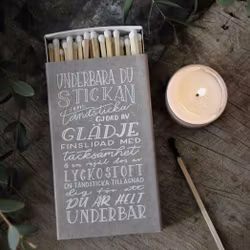 UNDERBARA DU
STICKAN
tändsticka
GJORD AV
GLÄDJE
FINSLIPAD MED
tacksamhet
& en nypa
LYCKOSTOFT
EN TÄNDSTICKA TILLÄGNAD
dig för att
DU ÄR HELT
UNDERBAR